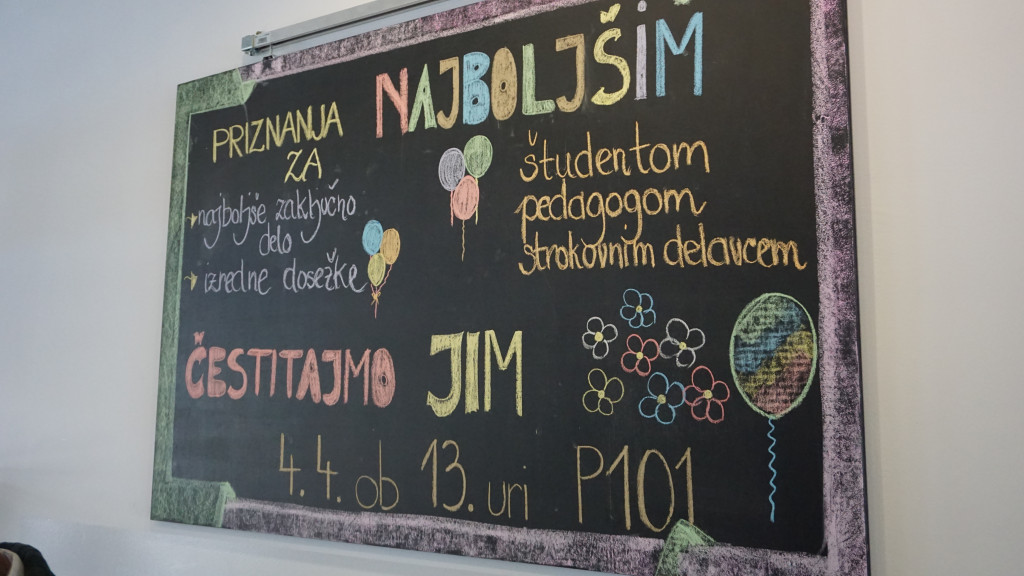 NAJBOLJŠIM
PRIZNANJA
ZA
najboljše zaključno
delo
izredne dosežke
študentom
pedagogom
strokovnim delavcem
ČESTITAJMO JIM
4.4. ob 13. uri P101